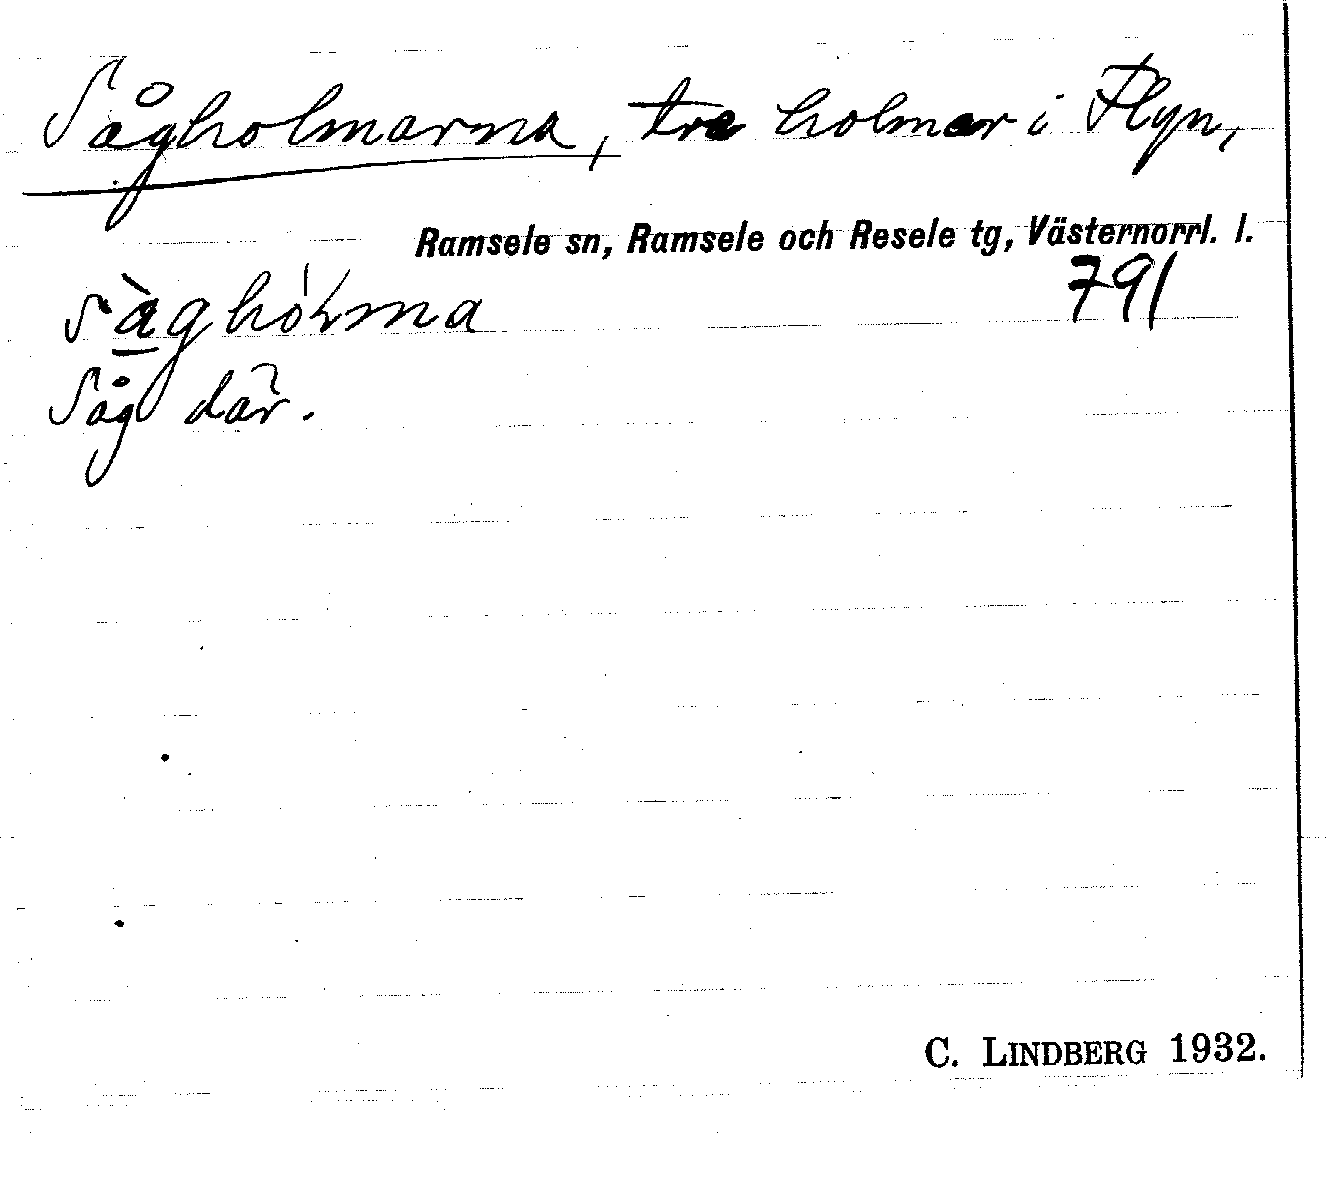 Sågholmarna, tre holmar i Flyn,
Ramsele sn, Ramsele och Resele tg, Västernorrl. l.
791
Såg där.
C. LINDBERG 1932.